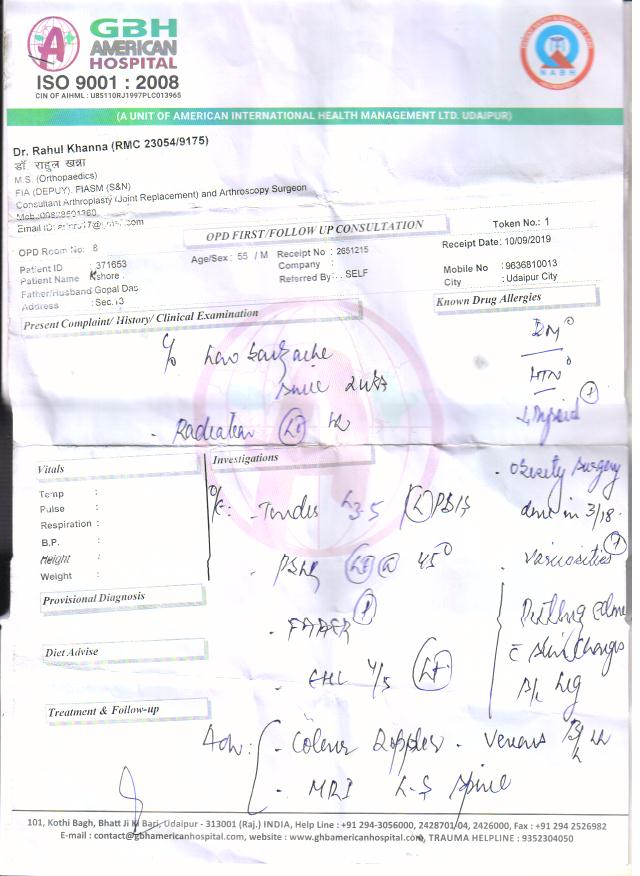 GBH
AMERICAN
HOSPITAL
ISO 9001 : 2008
CIN OF AIHML : U85110RJ1997PLC013965
NABH
(A UNIT OF AMERICAN INTERNATIONAL HEALTH MANAGEMENT LTD. UDAIPUR)
Dr. Rahul Khanna (RMC 23054/9175)
डॉ राहुल खन्ना
M.S. (Orthopaedics)
FIA (DEPUY), FIASM (S&N)
Consultant Arthroplasty (Joint Replacement) and Arthroscopy Surgeon
Mob.
Email ID:
OPD FIRST/FOLLOW UP CONSULTATION
Token No.: 1
OPD Room No: 8
Receipt Date: 10/09/2019
Patient ID : 371653
Age/Sex : 55 / M
Receipt No : 2651215
Mobile No : 9636810013
Patient Name : Kshore
Company :
City : Udaipur City
Father/Husband Gopal Das
Referred By: . SELF
Address : Sec.13
Known Drug Allergies
Present Complaint/ History/ Clinical Examination
DM°
HTN°
c/o Low backache
since 2
Radiation Lt
Vitals
Investigations
Temp :
Pulse :
Respiration :
B.P. :
Height :
Weight :
obesity surgery
done in 3/18.
O/E: - Tender L3-5 (L)
varicosities
45°
Provisional Diagnosis
Pitting edema
c̄ skin changes
B/L leg
FABER
Diet Advise
EHL 4/5 Lt
Treatment & Follow-up
Adv: - Colour Doppler - Venous B/L
- MRI L-S Spine
101, Kothi Bagh, Bhatt Ji Ki Bari, Udaipur - 313001 (Raj.) INDIA, Help Line : +91 294-3056000, 2428701/04, 2426000, Fax : +91 294 2526982
E-mail : contact@gbhamericanhospital.com, website : www.gbhamericanhospital.com, TRAUMA HELPLINE : 9352304050